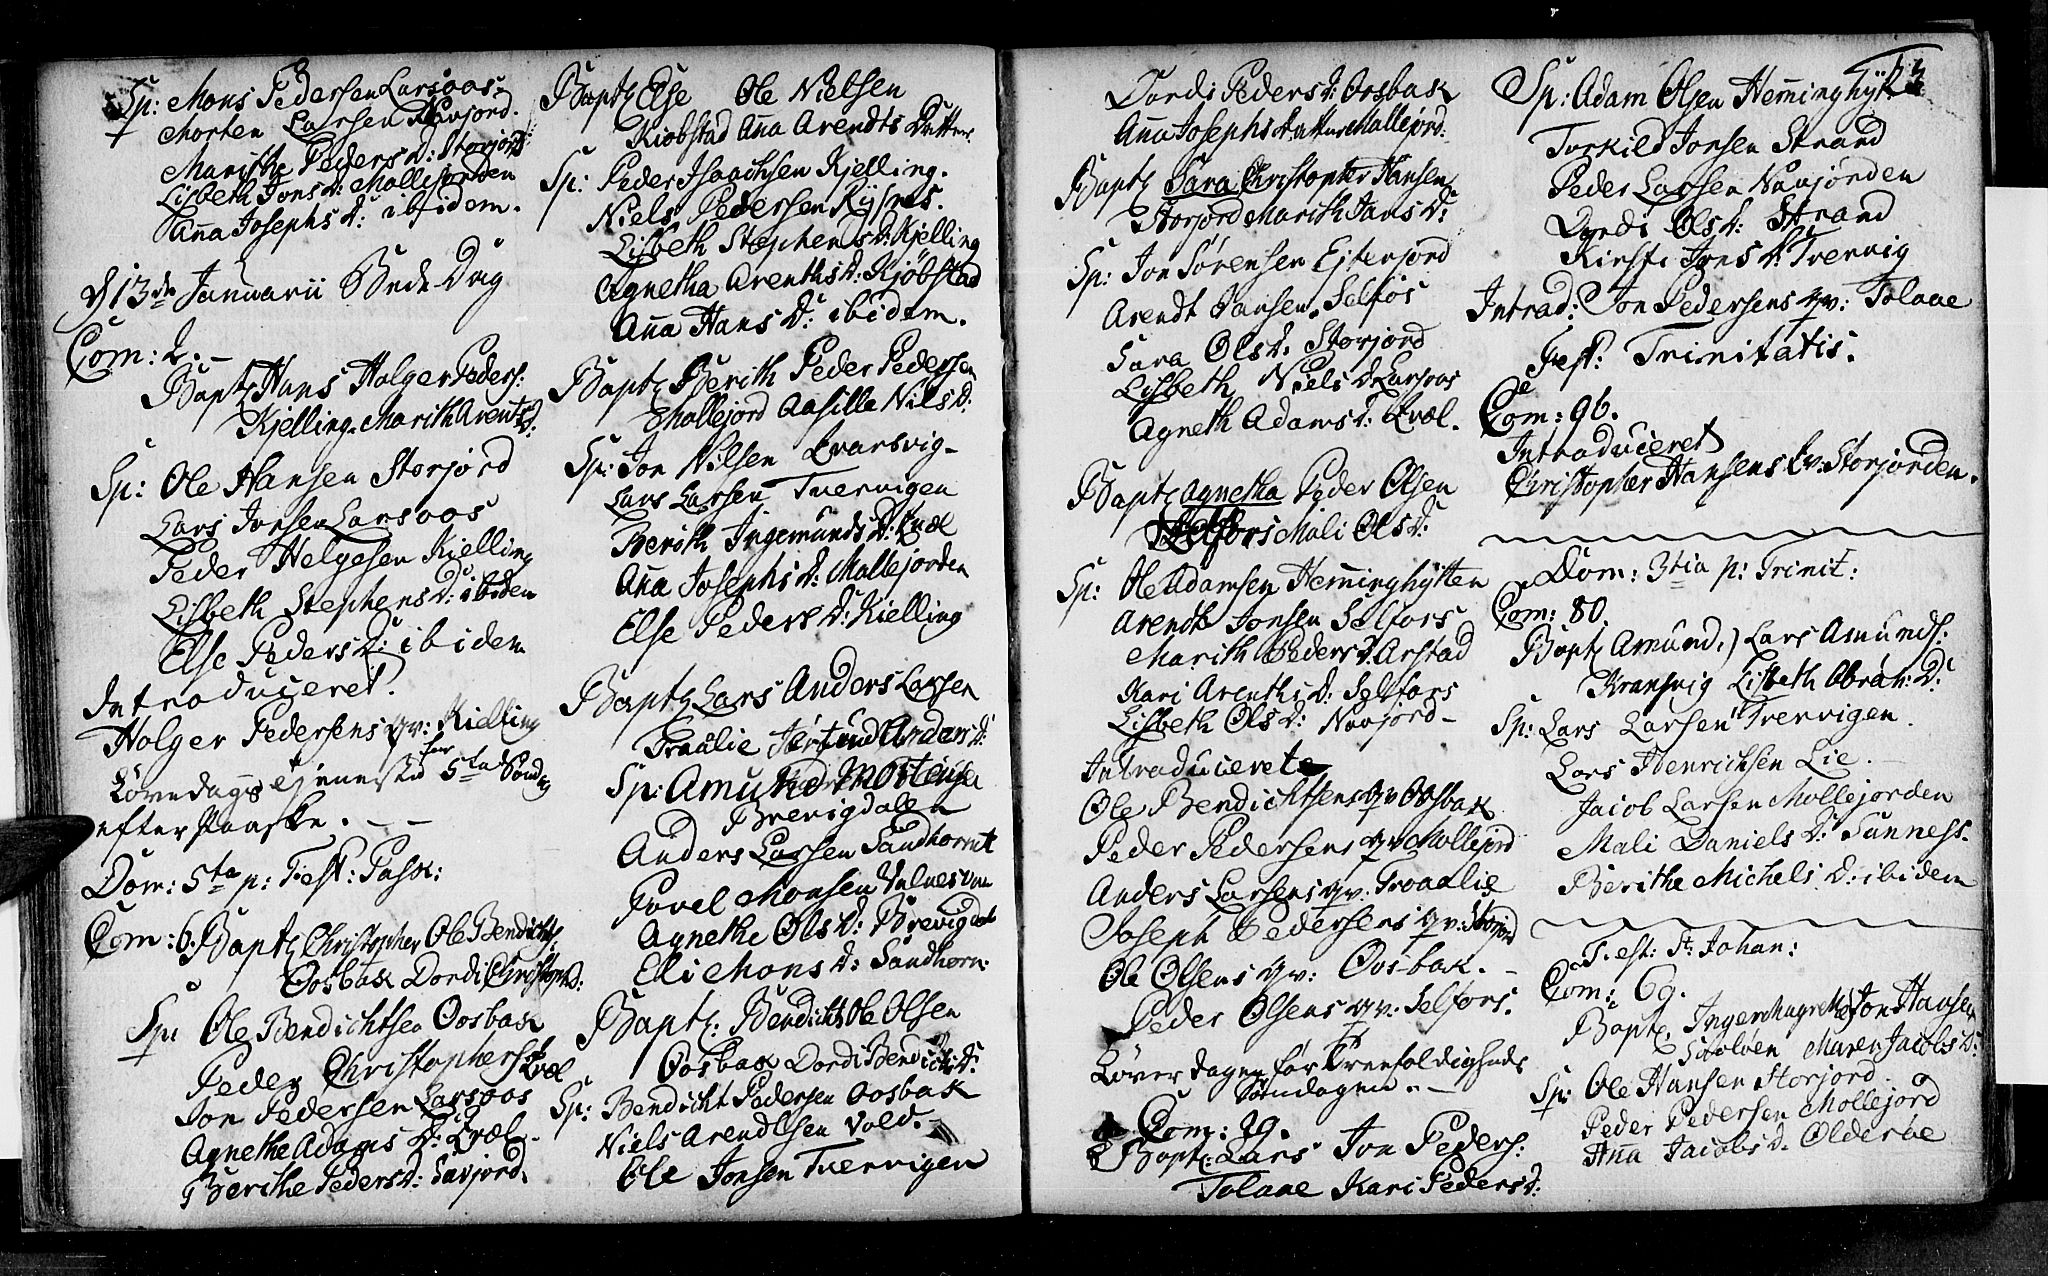 Sp: Mons Pedersen Larsoos.
Morten Larsen Navjord.
Marithe Peders D: Storjord
Lisbeth Jons D: Mollejorden
Aña Josephs D: ibidem.
d 13de Januarii Bede-Dag
Com: 2. –
Bapt: Hans Holger Peders:
Kjelling. Marith Arents D:
Sp: Ole Hansen Storjord
Lars Jonsen Larsoos
Peder Helgesen Kielling
Lisbeth Stephens D: ibidem
Else Peders D: ibidem
Introduceret.
Holger Pedersens qv: Kielling
Løverdags Tjeneste for 5ta Søndag
efter Paaske. – –
Dom: 5ta p: Fest: Pask:
Com: 6. Bapt: Christopher Ole Bendichts:
Oosbak Dordi Christoph D:
Sp: Ole Bendichtsen Oosbak
Peder Christophersen Kvæl
Jon Pedersen Larsoos
Agnethe Adams D: Kvæl –
Berithe Peders D: Navjord.
Bapt: Else Ole Nielsen
Kiobstad Aña Arendts Datter.
Sp: Peder Isaachsen Kjelling.
Niels Pedersen Rysnes.
Lisbeth Stephens D: Kjelling
Agnetha Arenths D: Kjöbstad
Aña Hans D: ibidem.
Bapt: Berith Peder Pedersen
Mollejord Aasille Nils D:
Sp: Jon Nilsen Kvarsvig –
Lars Larsen Tvervigen
Berith Ingemunds D: Kvæl
Aña Josephs D: Mollejorden
Else Peders D: Kielling
Bapt: Lars Anders Larsen
Traalie Jertrud Anders D:
Sp: Amund Mortensen
Brevigdalen
Anders Larsen Sandhornet
Povel Monsen Valnesvan
Agnethe Ols D: Brevigdal
Eli Mons D: Sandhorn:
Bapt: Bendicht Ole Olsen
Oosbak Dordi Bendichts D:
Sp: Bendicht Pedersen Oosbak
Niels Arendtsen Vold. –
Ole Jonsen Tvervigen
Dordi Peders D: Oosbak
Aña Josephs Datter Mollejord.
Bapt: Sara Christopher Hansen
Storjord Marith Jans D:
Sp: Jon Sørensen Ejterjord
Arendt Jansen Selfos
Sara Ols D: Storjord
Lisbeth Niels D: Larsoos
Agneth Adams D: Kvæl.
Bapt: Agnetha Peder Olsen
Selfors Mali Ols D:
Sp: Ole Adamsen Hem̄inghÿtten
Arendt Jonsen Selfors
Marith Peders D: Arstad
Kari Arenths D: Selfors
Lisbeth Ols D: Navjord –
Introducerete
Ole Bendichtsens qv Oosbak
Peder Pedersens qv Mollejord
Anders Larsens qv: Traalie
Joseph Pedersens qv: Storjord
Ole Olsens qv: Oosbak. –
Peder Olsens qv: Selfors.
Løverdagen før Treenfoldigheds
Søndagen. –
Com: 29.
Bapt: Lars Jon Peders:
Tolaae Kari Peders D:
Sp: Adam Olsen Hem̄inghÿt
Torkild Jonsen Strand
Peder Larsen Navjorden
Dordi Ols D: Strand
Kirsti Jons D: Tvervig
Introd: Jon Pedersens qv: Tolaae
Fest: Trinitatis.
Com: 96.
Introduceret
Christopher Hansens Kv: Storjorden.
Dom: 3tia p: Trinit:
Com: 80.
Bapt: Amund,) Lars Amunds:
Kransvig Lisbeth Obrah: D:
Sp: Lars Larsen Tvervigen.
Lars Henrichsen Lie.
Jacob Larsen Mollejorden
Mali Daniels D: Sunness.
Berithe Michels D: ibidem
Fest: St: Johan:
Com: 69.
Bapt: Inger Magrethe) Jon Hansen
Stoløen Maren Jacobs D:
Sp: Ole Hansen Storjord
Peder Pedersen Mollejord
Aña Jacobs D: Olderöe